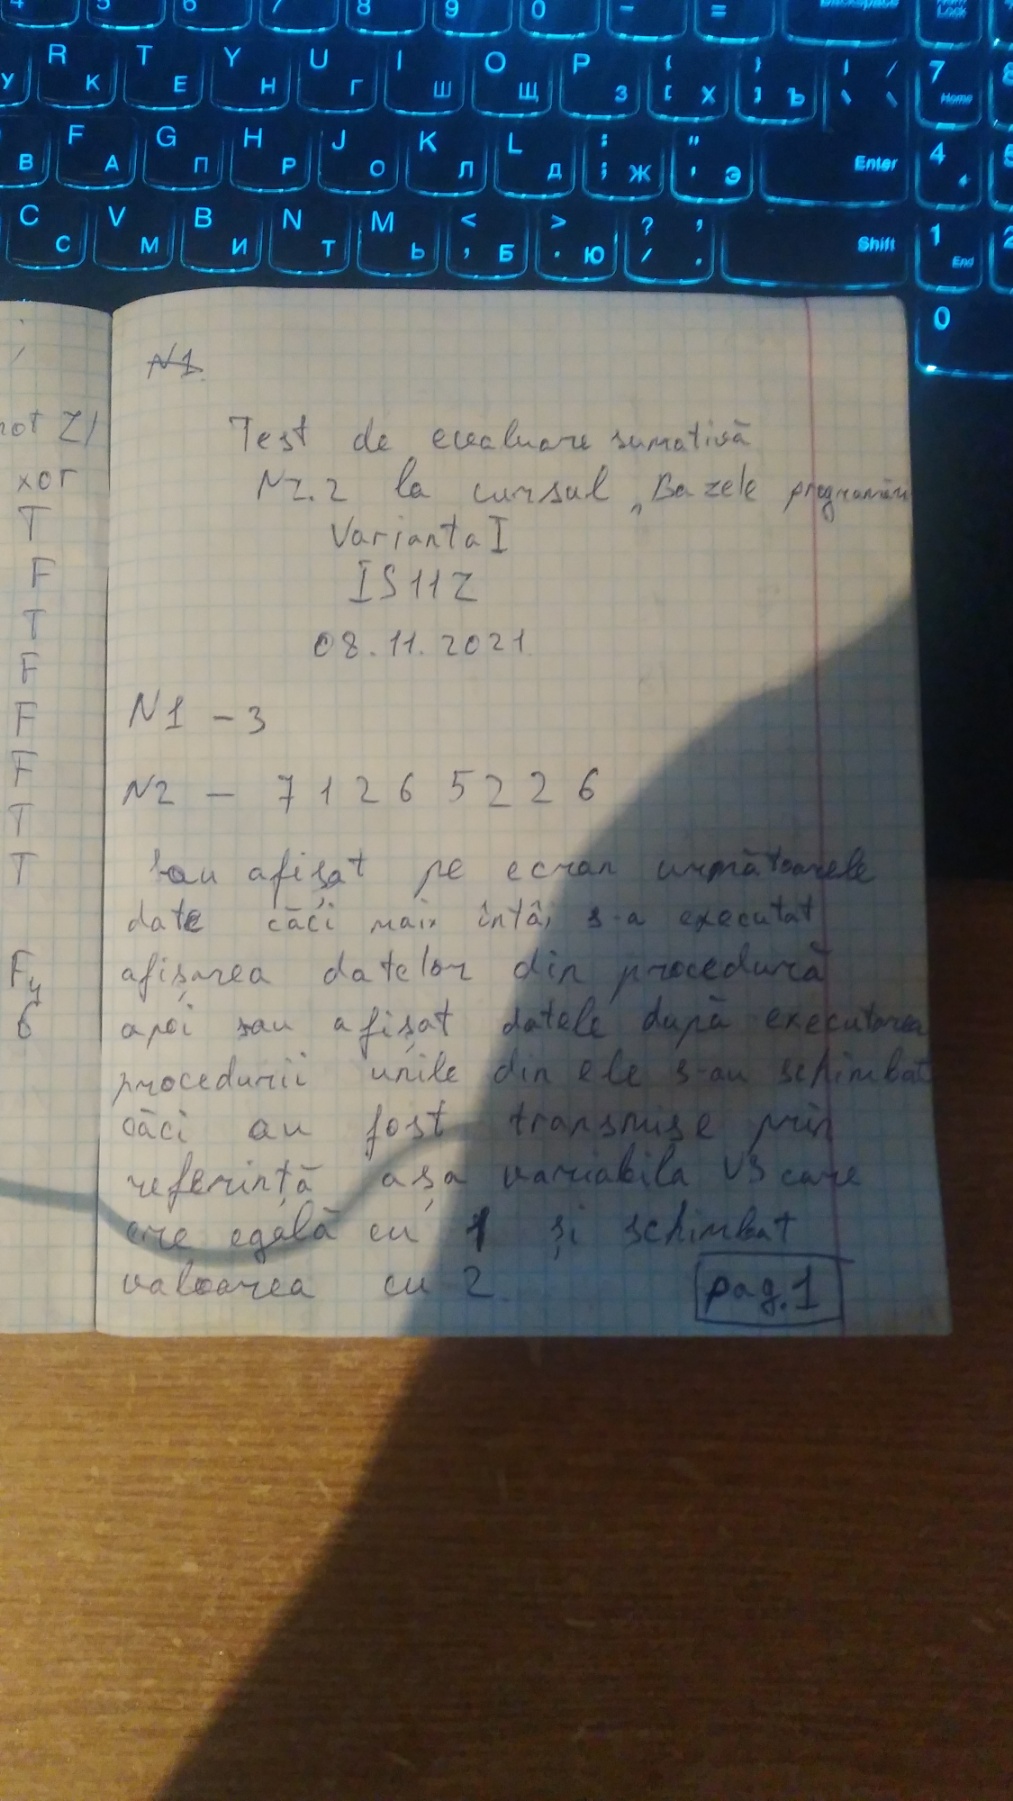 4 5 6 7 8 9 0 - = Backspace Num Lock
У R К T Е Y Н U Г I Ш O Щ P З { [ Х } ] Ъ | \ / \ 7 Home 8
В F А G П H Р J О K Л L Д : ; Ж " ' Э Enter 4 5
C С V М B И N Т M Ь < , Б > . Ю ? / , . Shift 1 End 2
0
N1.
Test de evaluare sumativă
Nr.2 la cursul „Bazele programări
Varianta I
IS11Z
08.11.2021
N1 - 3
N2 - 7 1 2 6 5 2 2 6
sau afișat pe ecran următoarele
date căci mai întâi s-a executat
afișarea datelor din procedură
apoi sau afișat datele după executarea
procedurii unile din ele s-au schimbat
căci au fost transmise prin
referință așa variabila V3 care
ere egală cu 1 și schimbat
valoarea cu 2.
pag.1
not Z)
xor
T
F
T
F
F
F
T
T
F4
6